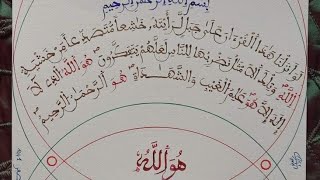 بِسْمِ اللَّهِ الرَّحْمَنِ الرَّحِيمِ
لَوْ أَنزَلْنَا هَذَا الْقُرْءَانَ عَلَى جَبَلٍ لَّرَأَيْتَهُ خَاشِعاً مُّتَصَدِّعاً مِّنْ خَشْيَةِ
اللَّهِ وَتِلْكَ الْأَمْثَالُ نَضْرِبُهَا لِلنَّاسِ لَعَلَّهُمْ يَتَفَكَّرُونَ هُوَ اللَّهُ الَّذِي لَا
إِلَهَ إِلَّا هُوَ عَالِمُ الْغَيْبِ وَالشَّهَادَةِ هُوَ الرَّحْمَنُ الرَّحِيمُ
هُوَ اللَّهُ